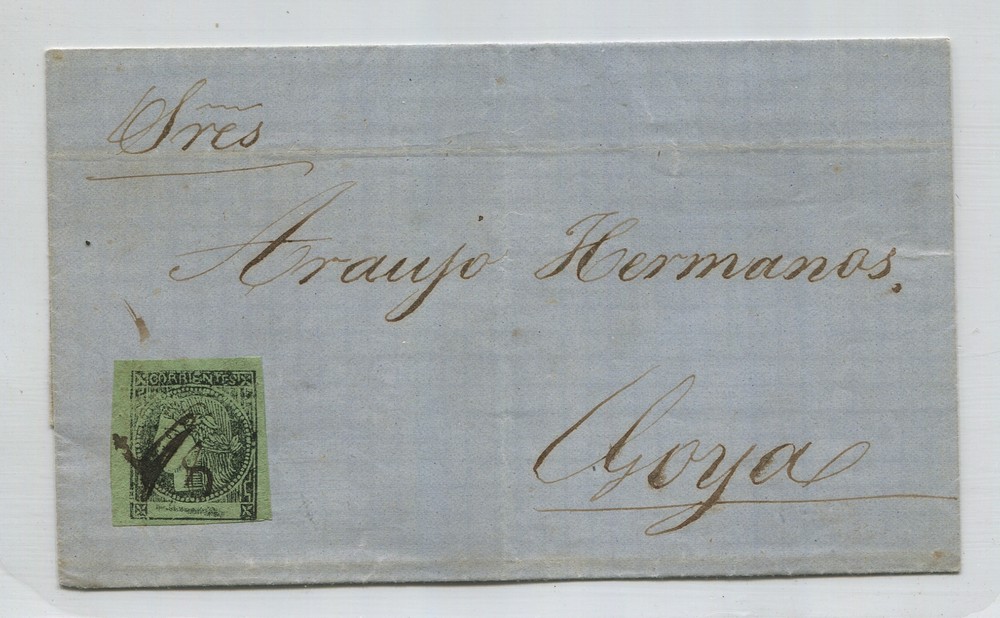 Sres
Araujo Hermanos.
Goya
CORRIENTES